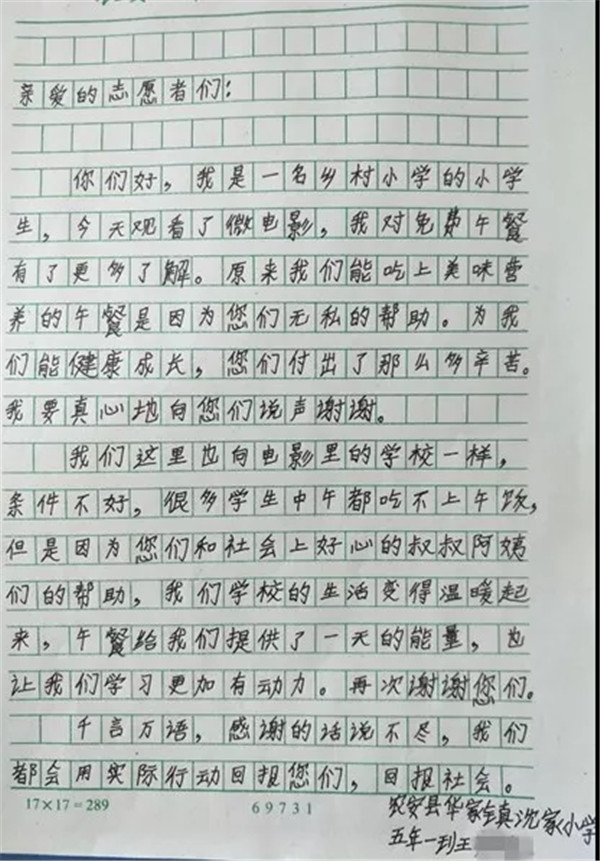 亲爱的志愿者们：
你们好，我是一名乡村小学的小学
生，今天观看了微电影，我对免费午餐
有了更多了解。原来我们能吃上美味营
养的午餐是因为您们无私的帮助。为我
们能健康成长，您们付出了那么多辛苦。
我要真心地向您们说声谢谢。
我们这里也向电影里的学校一样，
条件不好，很多学生中午都吃不上午饭，
但是因为您们和社会上好心的叔叔阿姨
们的帮助，我们学校的生活变得温暖起
来，午餐给我们提供了一天的能量，也
让我们学习更加有动力。再次谢谢您们。
千言万语，感谢的话说不尽，我们
都会用实际行动回报您们，回报社会。
17×17=289 69731
农安县华家镇沈家小学
五年一班王